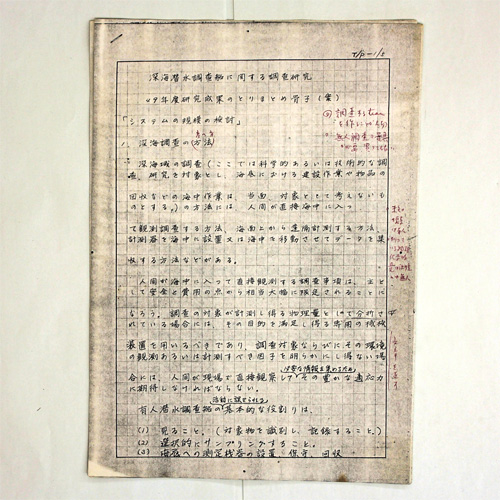 深海潜水調査船に関する調査研究
49年度研究成果のとりまとめ骨子(案)
「システムの規模の検討」
1. 深海調査の(方法)
深海域の調査(ここでは科学的あるいは技術的な調
査研究を対象とし、海底における建設作業や物品の
回収などの海中作業は、当面、対象として考えないも
のとする。)の方法には、人間が直接海中に入っ
て観測調査する方法、海面上から遠隔計測する方法、
計測器を海中に設置又は海中を移動させてデータを集
収する方法などがある。
人間が海中に入って直接観測する調査事項は、主と
して安全と費用の点から相当大幅に限定されることに
なろう。調査の対象が計測し得る物理量として分析さ
れている場合には、その目的を満足し得る専用の機械
装置を用いるべきであり、調査対象ならびにその環境
の観測あるいは計測すべき因子を明らかにし得ない場
合には、人間が現場で直接観察し必要な情報を集めるため、その豊かな適応力
に期待しなければならない。
有人潜水調査船の基本的な役割りは、
(1) 見ること。(対象物を識別し、記録すること。)
(2) 選択的にサンプリングすること。
(3) 海底への測定機器の設置、保守、回収